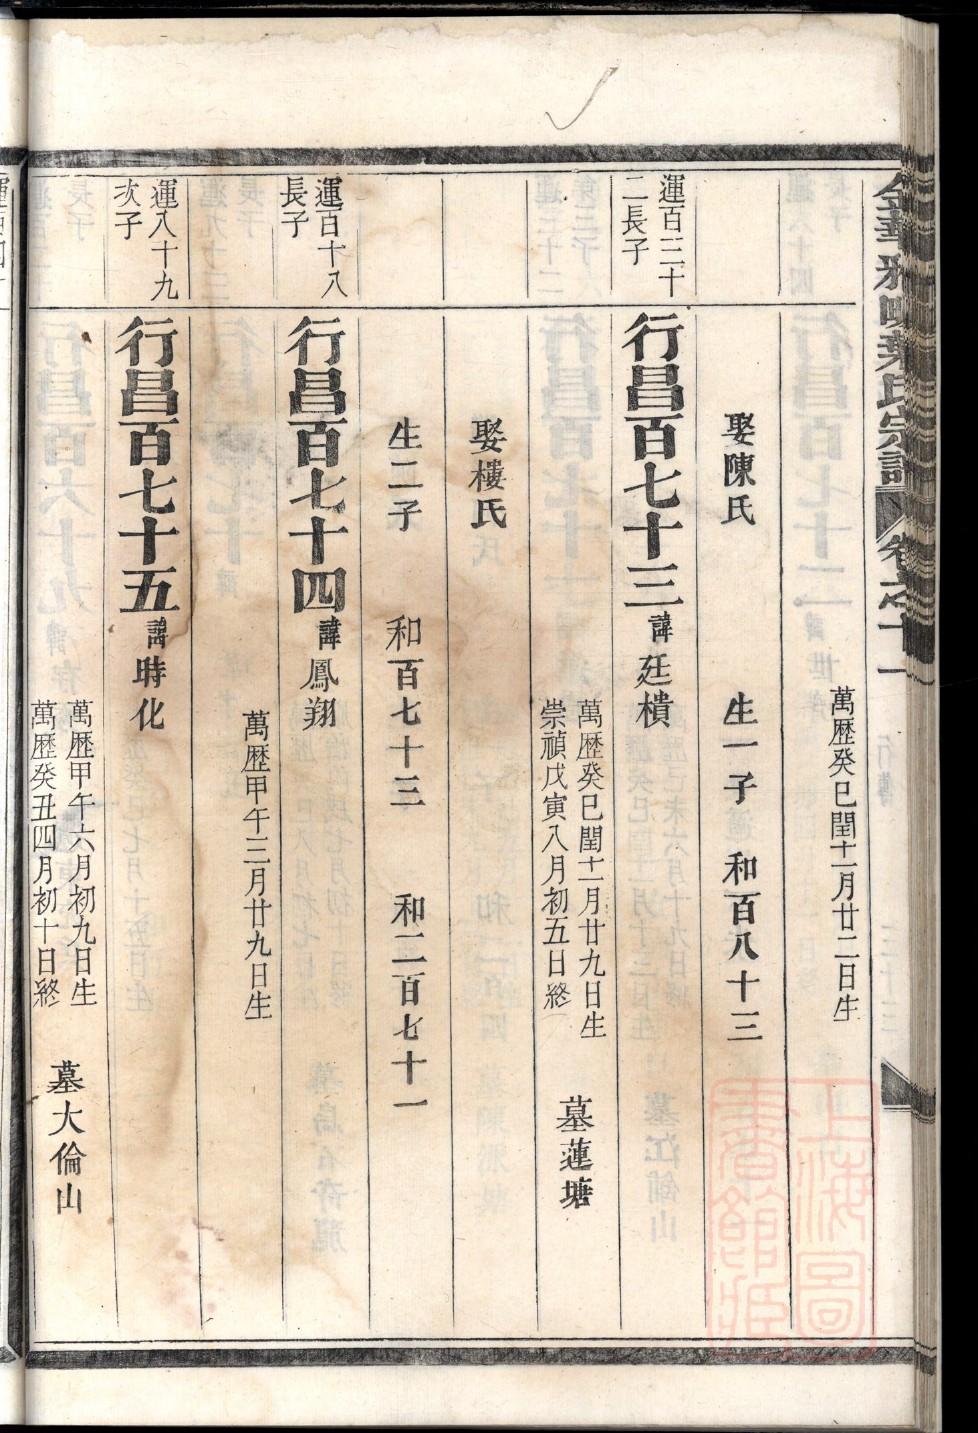 萬歷癸巳閏十一月廿二日生
娶陳氏 生一子 和百八十三
運百三十
二長子
行昌百七十三 諱廷樻
萬歷癸巳閏十一月廿九日生
崇禎戊寅八月初五日終
墓蓮塘
娶樓氏
生二子 和百七十三 和二百七十一
運百十八
長子
行昌百七十四 諱鳳翔
萬歷甲午三月廿九日生
運八十九
次子
行昌百七十五 諱時化
萬歷甲午六月初九日生
萬歷癸丑四月初十日終
墓大倫山
上海圖
書館藏